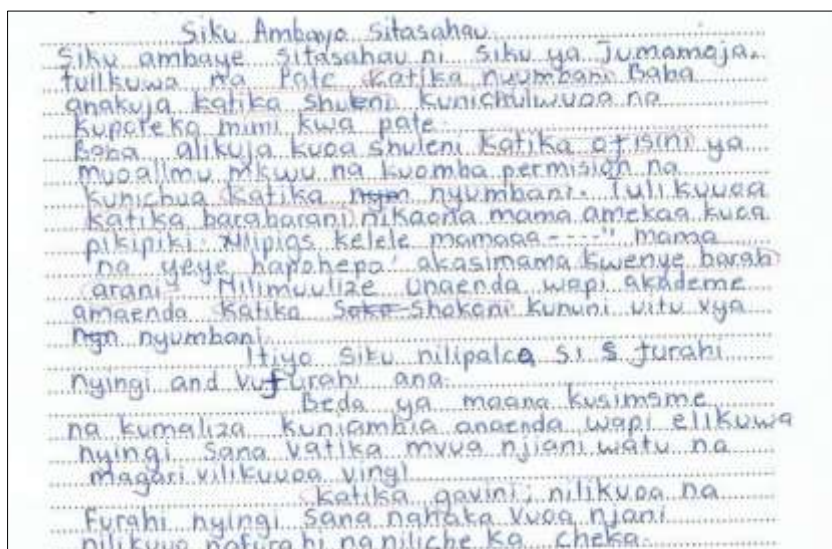 Siku Ambayo Sitasahau
Siku ambaye Sitasahau ni siku ya Jumamoja.
tulikuwa na Pate Katika nyumbani Baba
anakuja katika Shuleni kunichulwuoa na
kupoteka mimi kwa pate.
Baba alikuja kuoa shuleni katika ofisini ya
muoallmu mkwu na kuomba permision na
kunichua katika nyumbani. Tulikuuoa
katika barabarani nikaona mama amekaa kuoa
pikipiki. Nlipigs kelele mamaaa----" mama
na yeye hapohepo' akasimama kwenye barab
arani" Nilimuulize Unaenda wapi akademe
amaenda katika Shokoni kununi vitu vya
nyumbani.
Itiyo siku nilipalca si s furahi
nyingi and vufurahi ana.
Beda ya maana kusimsme
na kumaliza kuniambia anaenda wapi elikuwa
nyingi sana vatika mvua njiani watu na
magari vilikuuoa vingi
katika gavini; nilikuoa na
Furahi nyingi sana nahaka vuoa njani
nilikuua nafurahi naniliche ka cheka.